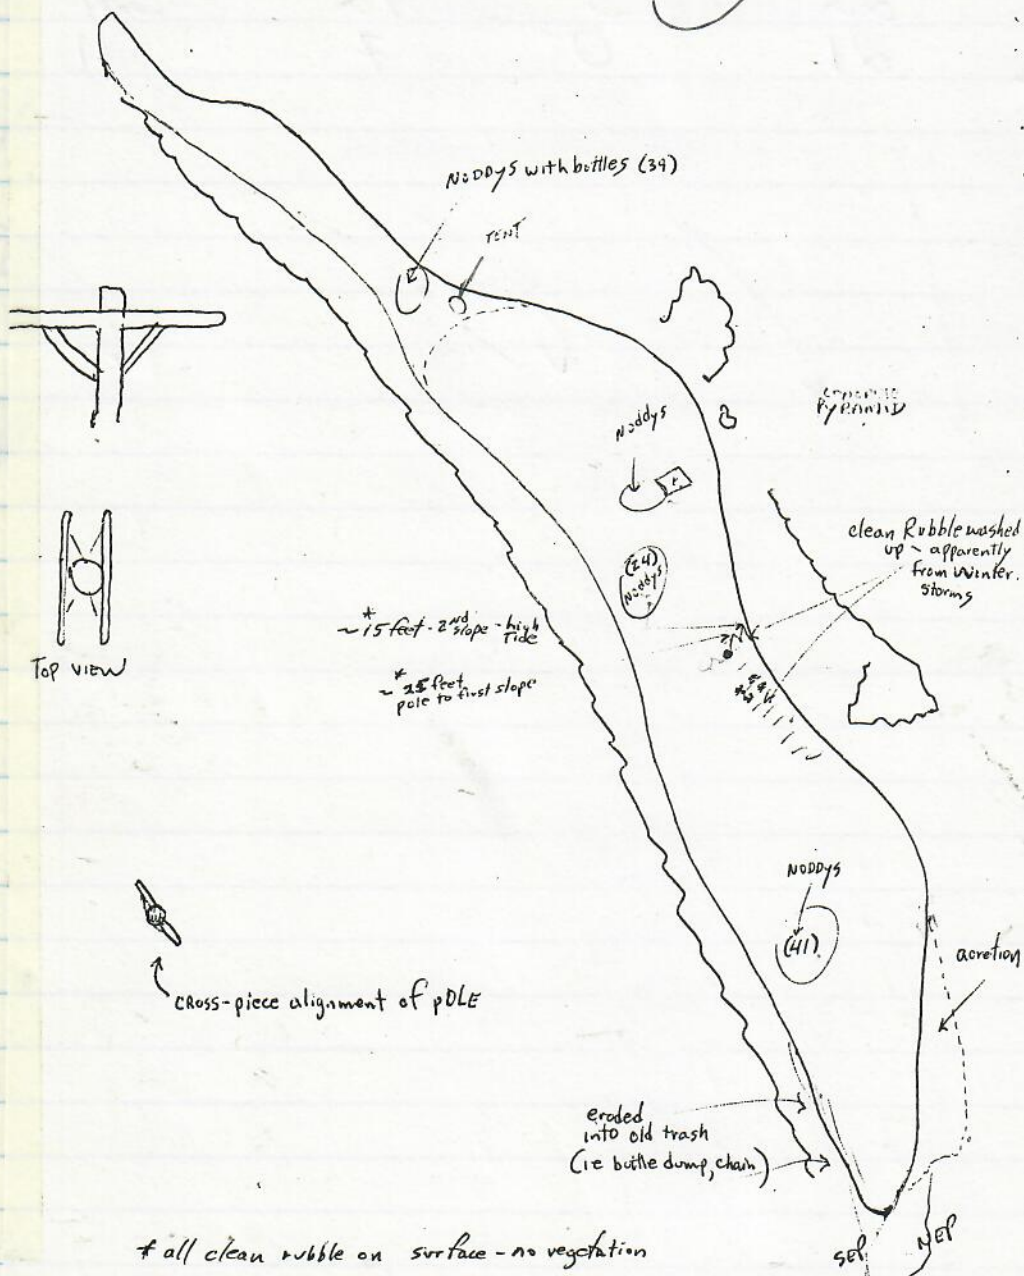 NODDYS with bottles (39)
TENT
Noddys
PYRAMID
clean Rubble washed
up - apparently
from Winter.
storms
(24)
Noddys
*
~ 15 feet - 2ND slope - high
Tide
*
~ 25 feet
pole to first slope
TOP VIEW
NODDYS
(41)
acretion
cross-piece alignment of pOLE
eroded
into old trash
(ie bottle dump, chain)
* all clean rubble on surface - no vegetation
SEP
NEP